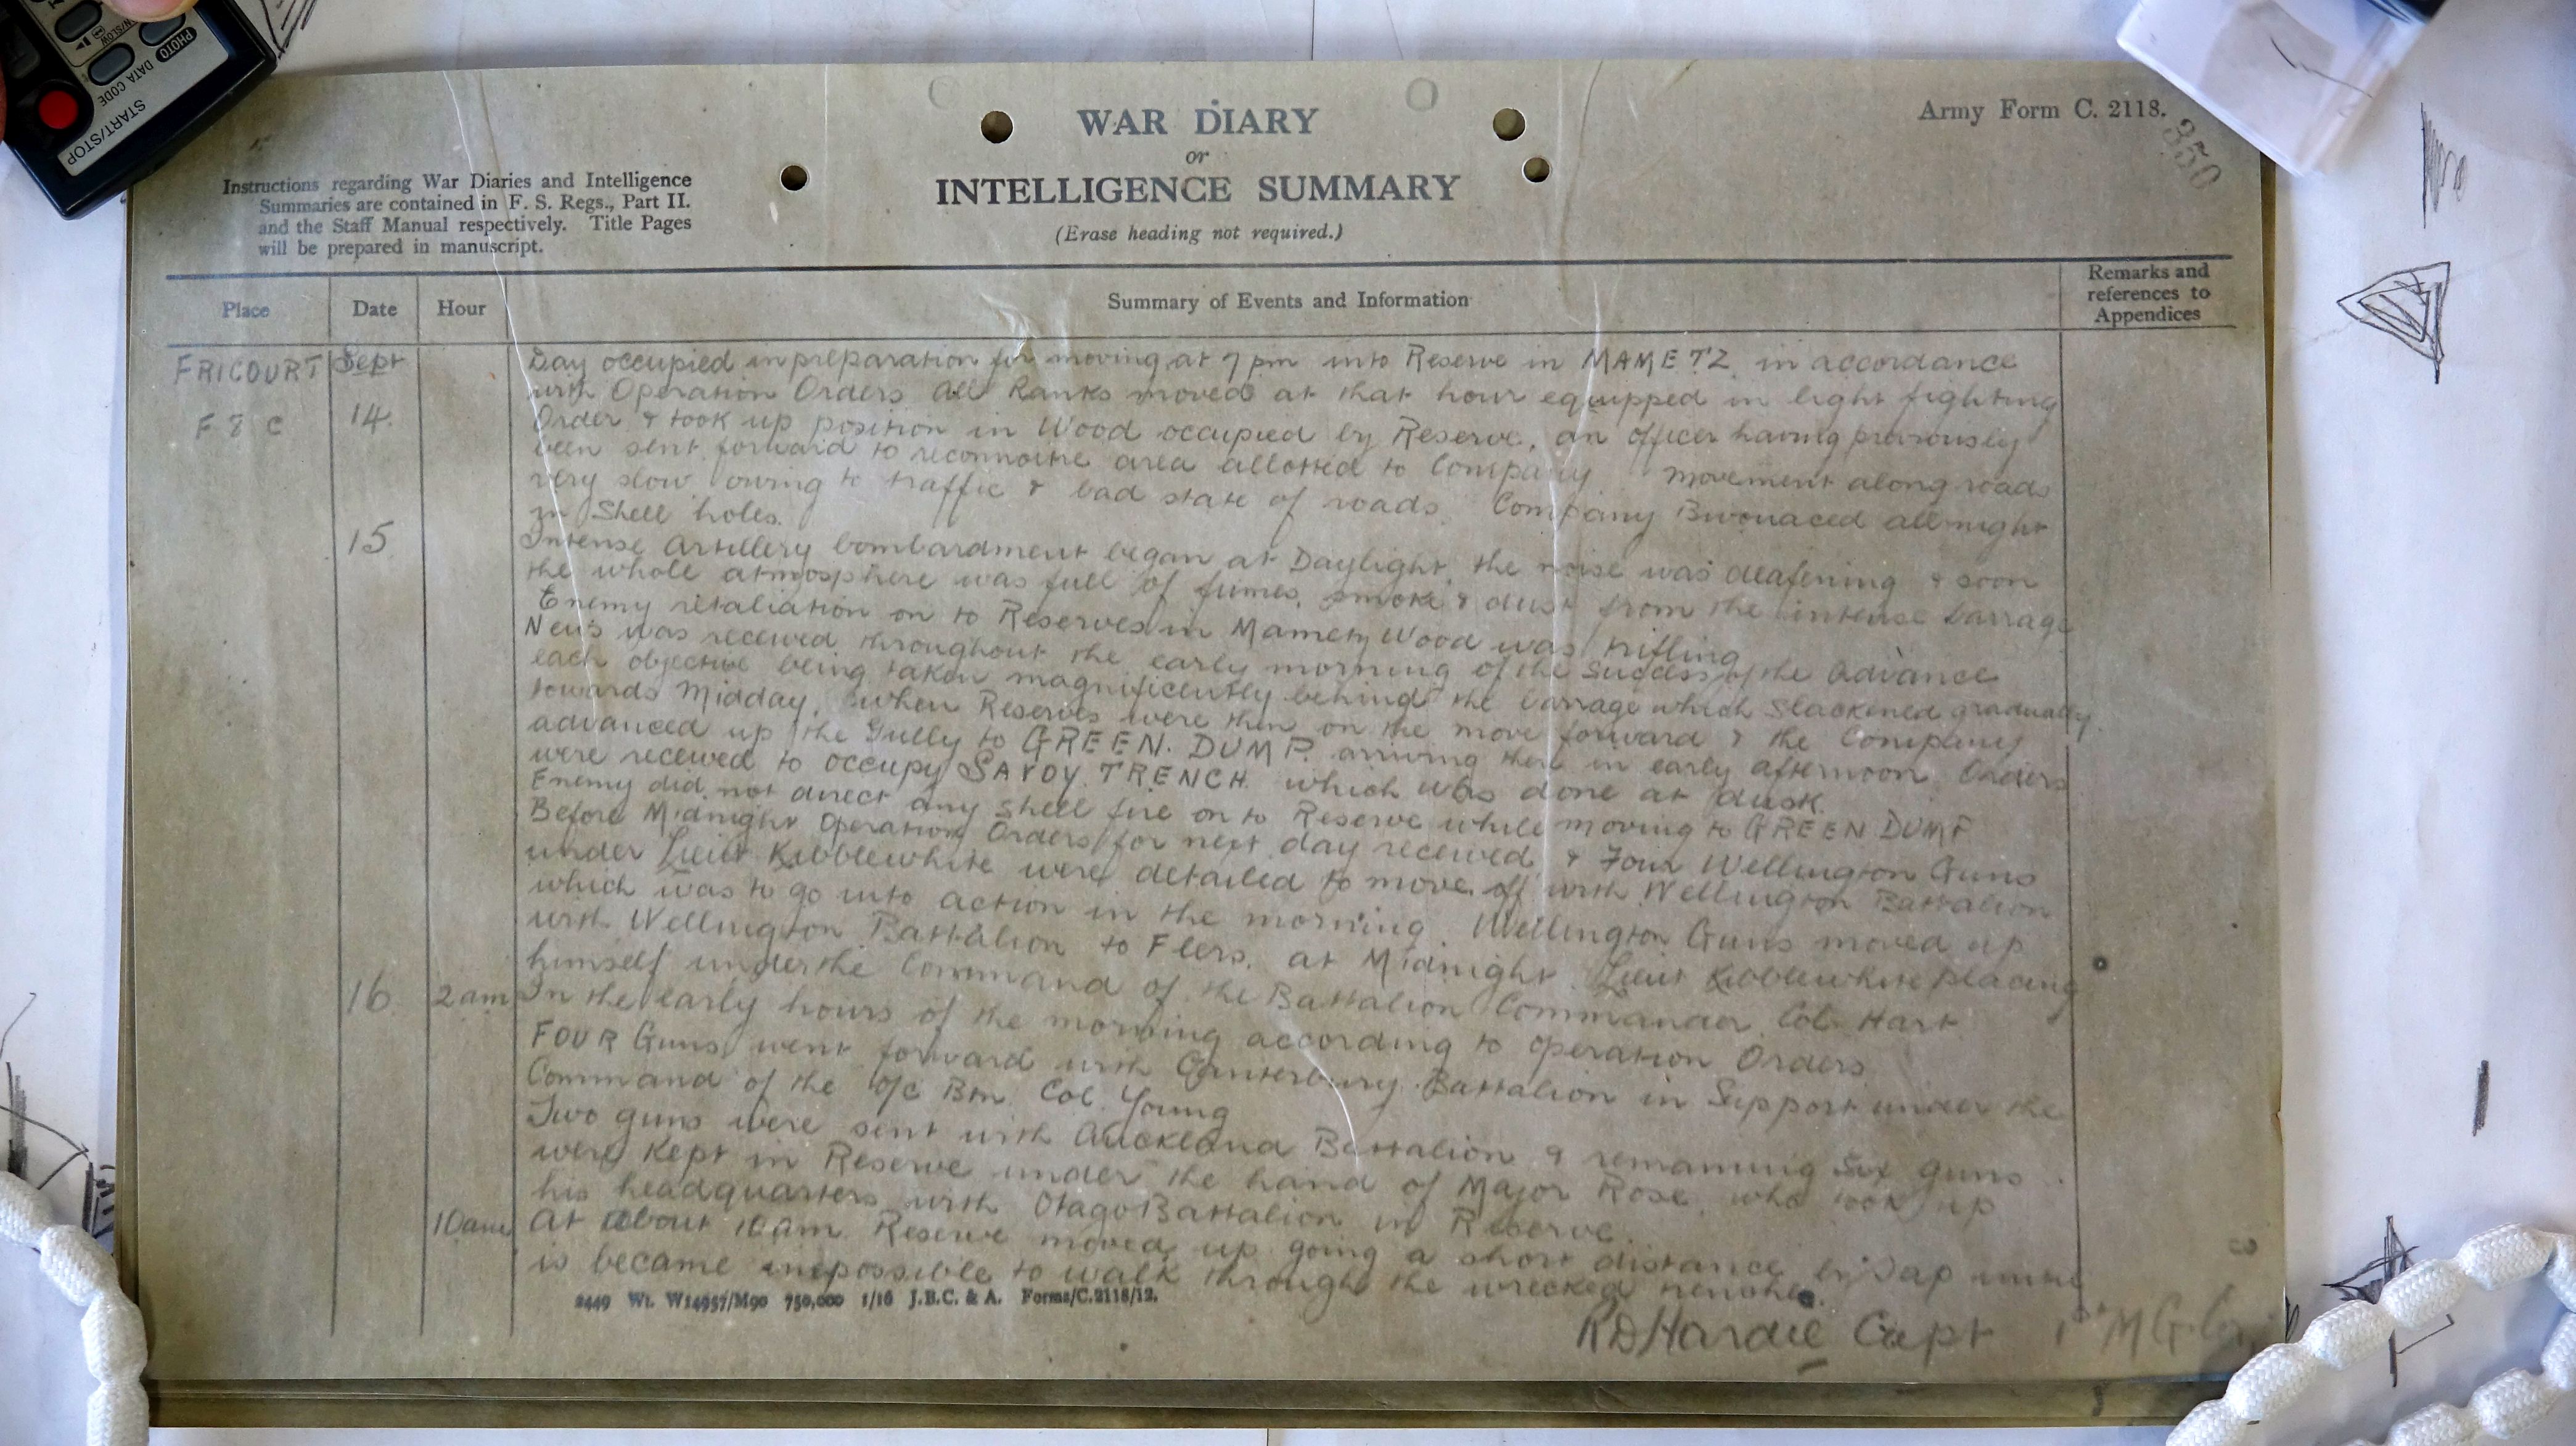 START/STOP
DATA CODE
PHOTO
WAR DIARY
or
INTELLIGENCE SUMMARY
(Erase heading not required.)
Army Form C. 2118.
350
Instructions regarding War Diaries and Intelligence
Summaries are contained in F. S. Regs., Part II.
and the Staff Manual respectively. Title Pages
will be prepared in manuscript.
Place
Date
Hour
Summary of Events and Information
Remarks and
references to
Appendices
FRICOURT Sept
F 8 C 14.
Day occupied in preparation for moving at 7 pm into Reserve in MAMETZ in accordance
with Operation Orders All Ranks moved at that hour equipped in light fighting
Order & took up position in Wood occupied by Reserve, an officer having previously
been sent forward to reconnoitre area allotted to Company Movement along roads
very slow owing to traffic & bad state of roads. Company Bivouaced all night
in Shell holes.
15 Intense Artillery bombardment began at Daylight, the noise was deafening & soon
the whole atmosphere was full of fumes, smoke & dust from the intense barrage
Enemy retaliation on to Reserves in Mametz Wood was trifling
News was received throughout the early morning of the Success of the Advance
each objective being taken magnificently behind the barrage which slackened gradually
towards Midday, when Reserves were then on the move forward & the Company
advanced up the Gully to GREEN. DUMP. arriving there in early afternoon Orders
were received to occupy SAVOY TRENCH which was done at dusk.
Enemy did not direct any shell fire on to Reserve while moving to GREEN DUMP
Before Midnight Operation Orders for next day received & Four Wellington Guns
under Lieut Kibblewhite were detailed to move off with Wellington Battalion
which was to go into action in the morning. Wellington Guns moved up
with Wellington Battalion to Flers. at Midnight. Lieut Kibblewhite placing
himself under the Command of the Battalion Commander Col Hart
16 2 am In the early hours of the morning according to operation Orders
FOUR Guns went forward with Canterbury Battalion in Support under the
Command of the O/C Btn. Col. Young
Two guns were sent with Auckland Battalion & remaining Six guns
were kept in Reserve under the hand of Major Rose, who took up
his headquarters with Otago Battalion in Reserve.
10am At about 10 am Reserve moved up going a short distance by Sap until
is became impossible to walk through the wrecked trenches.
2449 Wt. W14957/M90 750,000 1/16 J.B.C. & A. Forms/C.2118/12.
RD Hardie Capt